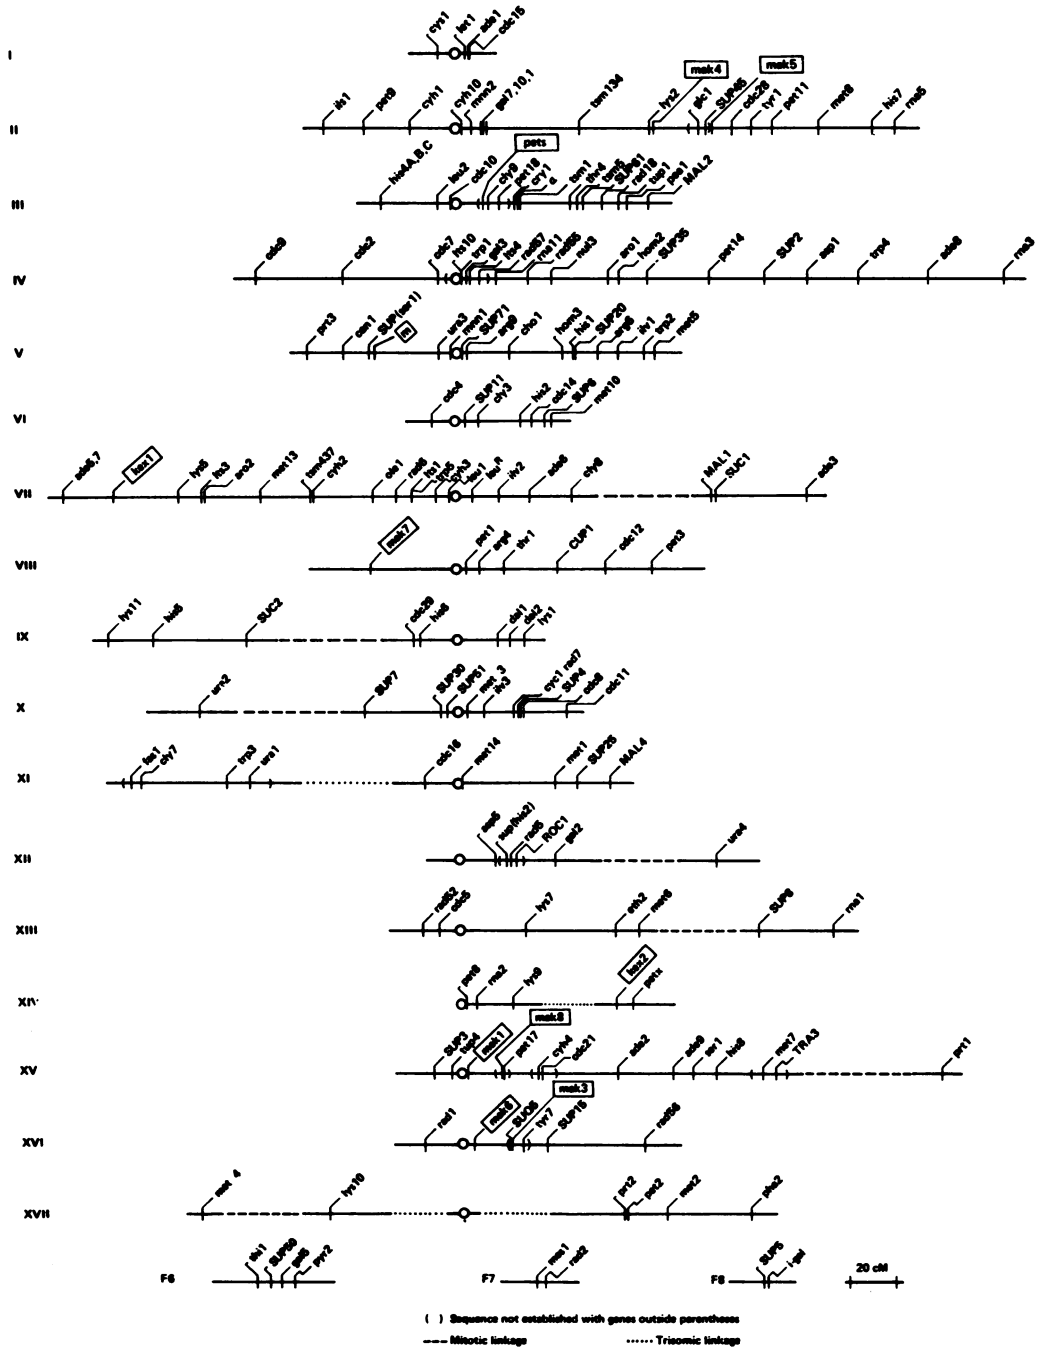 I
cys1 let1 ade1 cdc15
II
ils1 pet9 cyh1 cyh10 mnn2 gal7,10,1 tsm134 lys2 mak4 glc1 SUP45 mak5 cdc28 tyr1 pet11 met8 his7 rna5
III
his4A,B,C leu2 cdc10 pets cly9 pet18 cry1 α tsm1 thr4 tsm5 SUP61 rad18 tup1 MAL2
IV
cdc9 cdc2 cdc7 hts10 trp1 gal3 hts4 rad57 rna11 rad55 mal3 aro1 hom2 SUP35 pet14 SUP2 asp1 trp4 ade8 rna3
V
prt3 can1 SUP(ser1) m ura3 mnn1 SUP71 arg9 cho1 hom3 his1 SUP20 arg6 ilv1 trp2 met5
VI
cdc4 SUP11 cly3 his2 cdc14 SUP6 met10
VII
ade5,7 kex1 lys5 hs3 aro2 met13 tsm437 cyh2 ole1 rad6 hs1 trp5 cyh3 leu1 ilv2 ade6 cly8 MAL1 SUC1 ade3
VIII
mak7 pet1 arg4 thr1 CUP1 cdc12 pet3
IX
lys11 his5 SUC2 cdc29 his6 dal1 dal2 lys1
X
SUP7 SUP30 SUP51 met 3 ilv3 cyc1 rad7 SUP4 cdc8 cdc11
XI
fas1 cly7 trp3 ura1 cdc16 met14 met1 SUP25 MAL4
XII
asp5 sup(his2) rad5 ROC1 gal2 ura4
XIII
rad52 cdc5 lys7 eth2 met6 SUP8 rna1
XIV
pet8 rna2 lys9 kex2 petx
XV
SUP3 tup4 mak1 pet17 mak8 cyh4 cdc21 ade2 ade9 ser1 his6 met7 TRA3 prt1
XVI
rad1 mak6 SUQ5 mak3 tyr7 SUP15 rad56
XVII
met 4 lys10 prt2 pet2 met2 pha2
F6
thi1 SUP50 gal5 pyr2
F7
mes1 rad2
F8
SUP5 i-gal
20 cM
( ) Sequence not established with genes outside parentheses
--- Mitotic linkage ...... Trisomic linkage